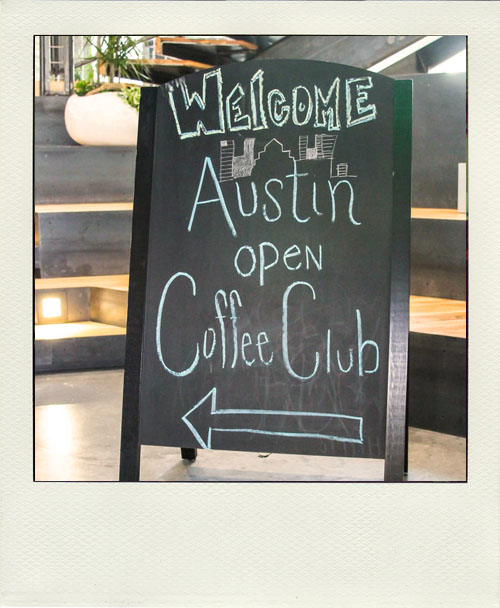 WELCOME
Austin
open
Coffee Club